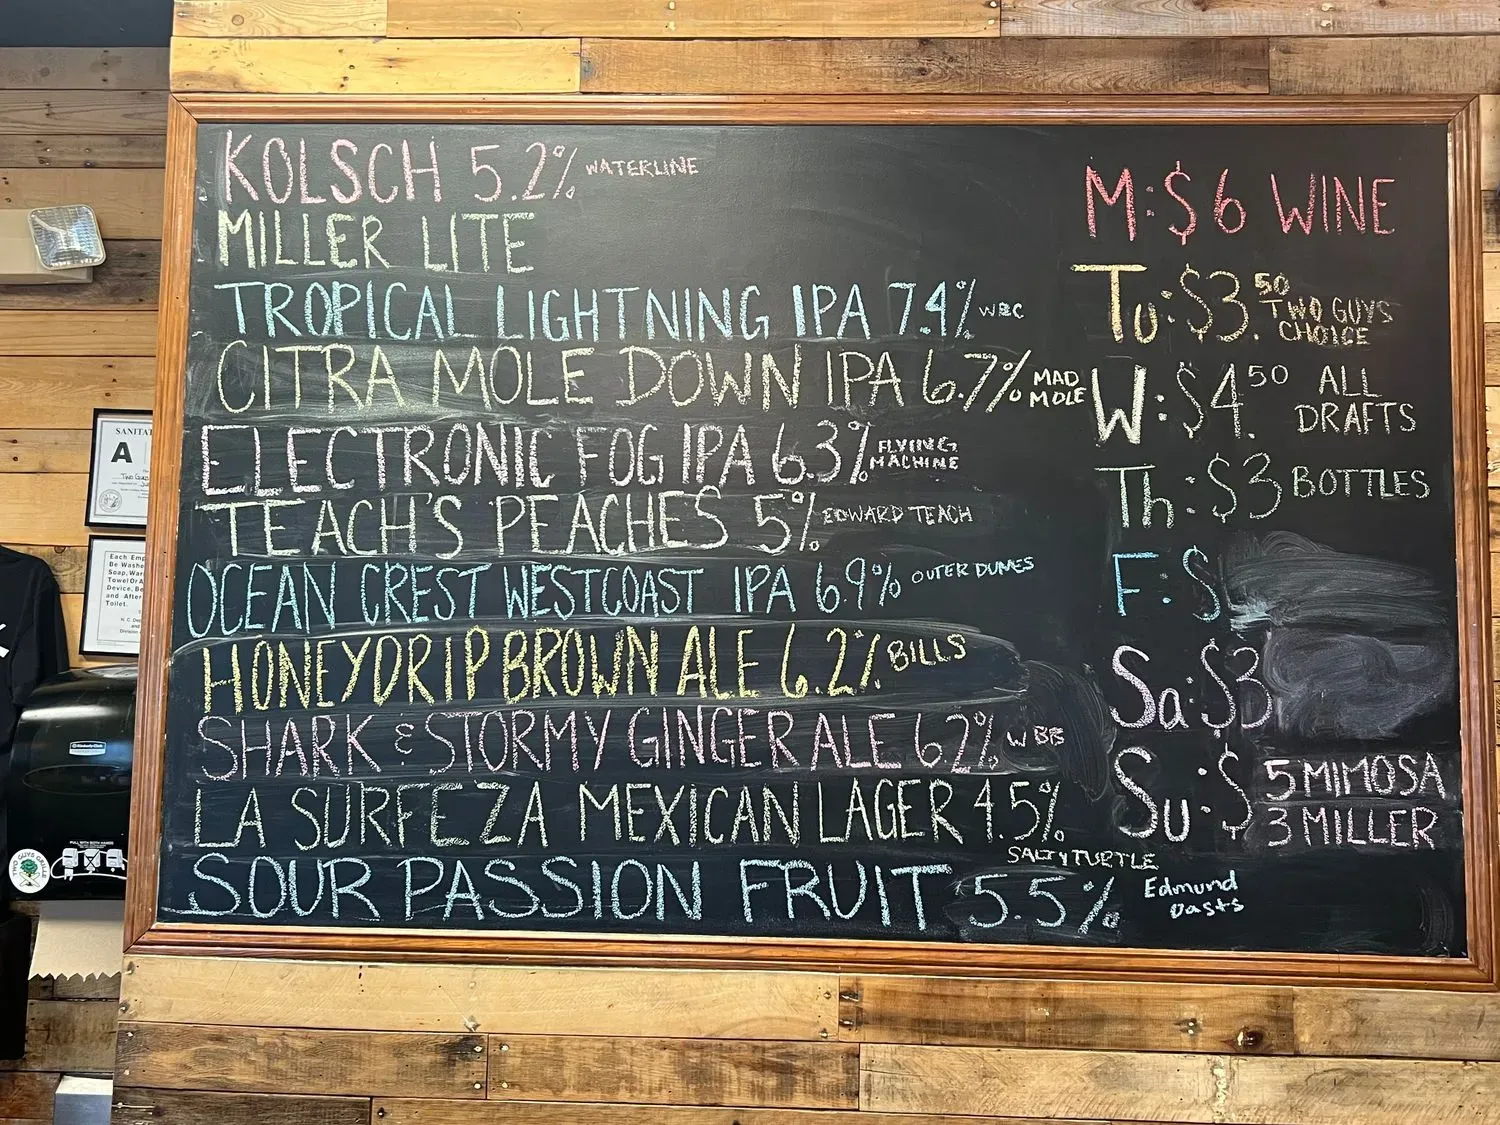 KOLSCH 5.2% WATERLINE
MILLER LITE
TROPICAL LIGHTNING IPA 7.4% WBC
CITRA MOLE DOWN IPA 6.7% MAD
MOLE
ELECTRONIC FOG IPA 6.3% FLYING
MACHINE
TEACH'S PEACHES 5% EDWARD TEACH
OCEAN CREST WESTCOAST IPA 6.9% OUTER DUNES
HONEYDRIP BROWN ALE 6.2% BILLS
SHARK & STORMY GINGER ALE 6.2% WBB
LA SURFEZA MEXICAN LAGER 4.5%
SALTY TURTLE
SOUR PASSION FRUIT 5.5% Edmund
Oasts
M: $6 WINE
Tu: $3.50 TWO GUYS
CHOICE
W: $4.50 ALL
DRAFTS
Th: $3 BOTTLES
F: $
Sa: $3
Su: $ 5 MIMOSA
3 MILLER
SANITAT
A
Two Guys
Each Emp
Be Washe
Soap, War
Towel Or A
Device, Be
and After
Toilet.
N. C. Dep
and
Division
Kimberly-Clark
PULL WITH BOTH HANDS
TWO GUYS GRILLE